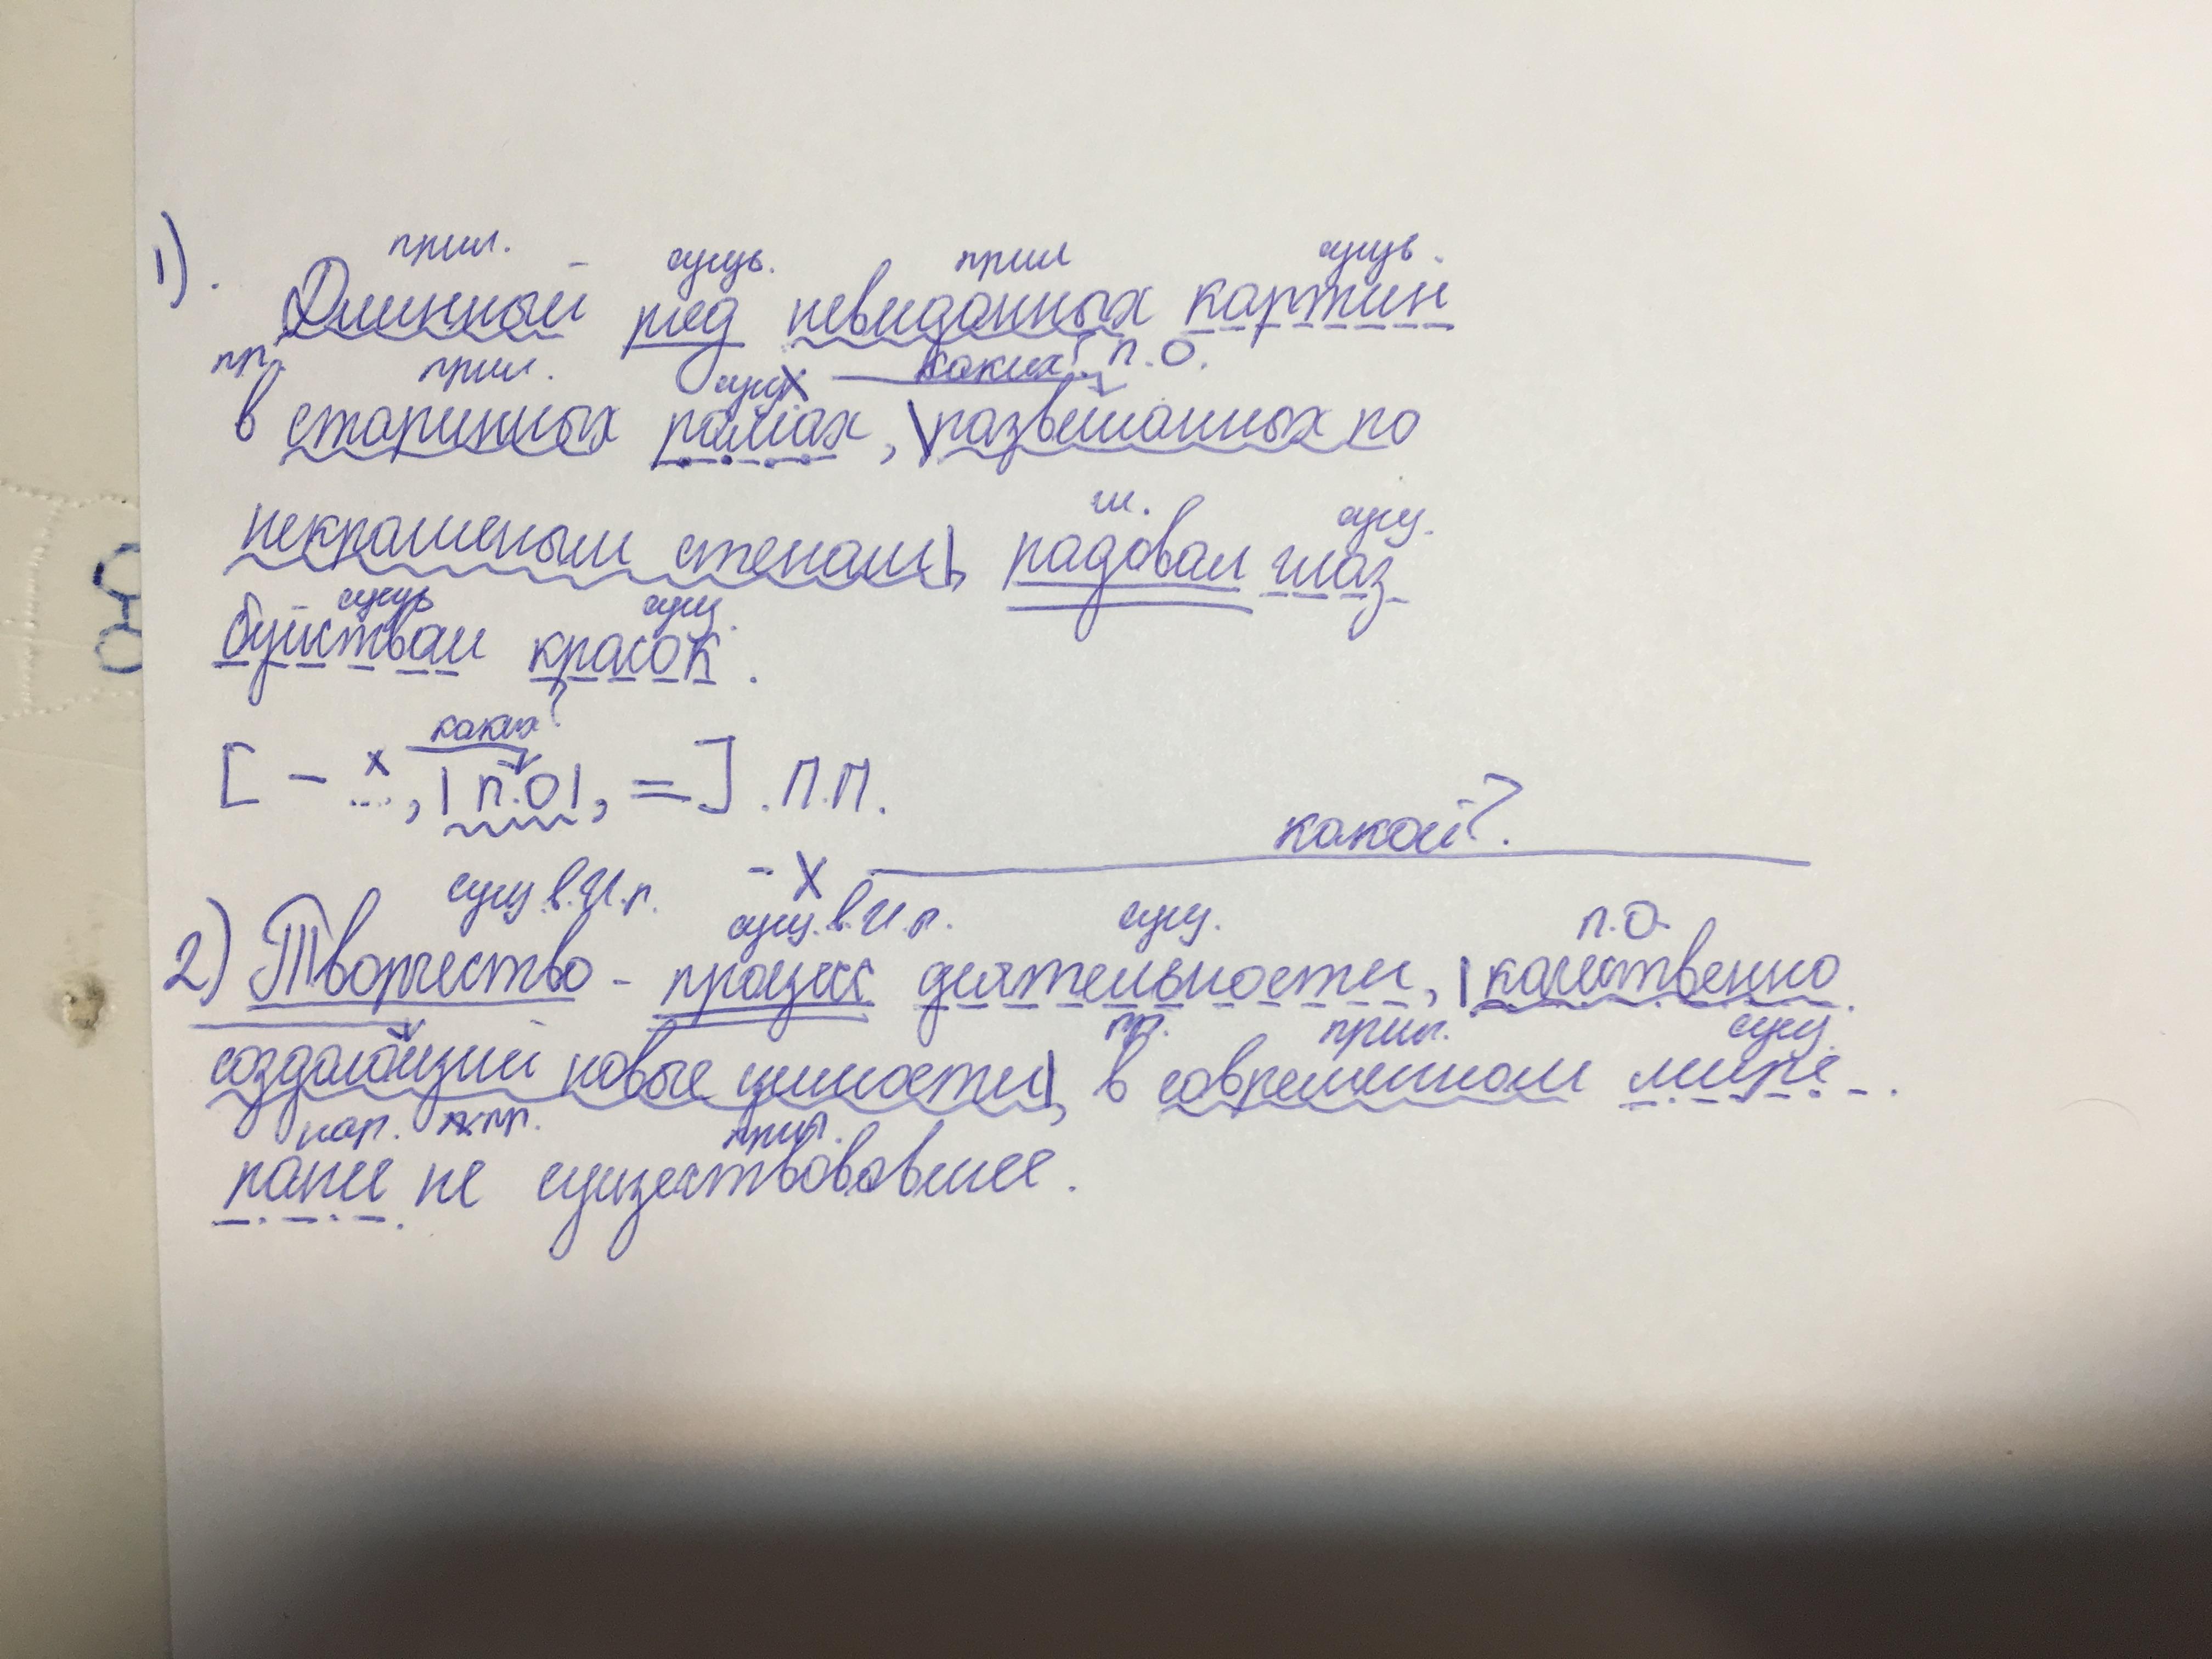 прил. сущ. прил сущ.
1). Длинный ряд невиданных картин
пр. прил. сущ х каких? п.о.
в старинных рамах, |развешанных по
гл. сущ.
некрашеным стенам|, радовал глаз
сущ сущ.
буйством красок.
каких?
[ - х..., | п.о|, = ] . П.П.
- х какой?.
сущ в.И.п. сущ. в.И.п. сущ. п.о.
2) Творчество - процесс деятельности, |качественно
пр. прил. сущ.
создающий новые ценности|, в современном мире
нар. пр. прич.
ранее не существовавшее.